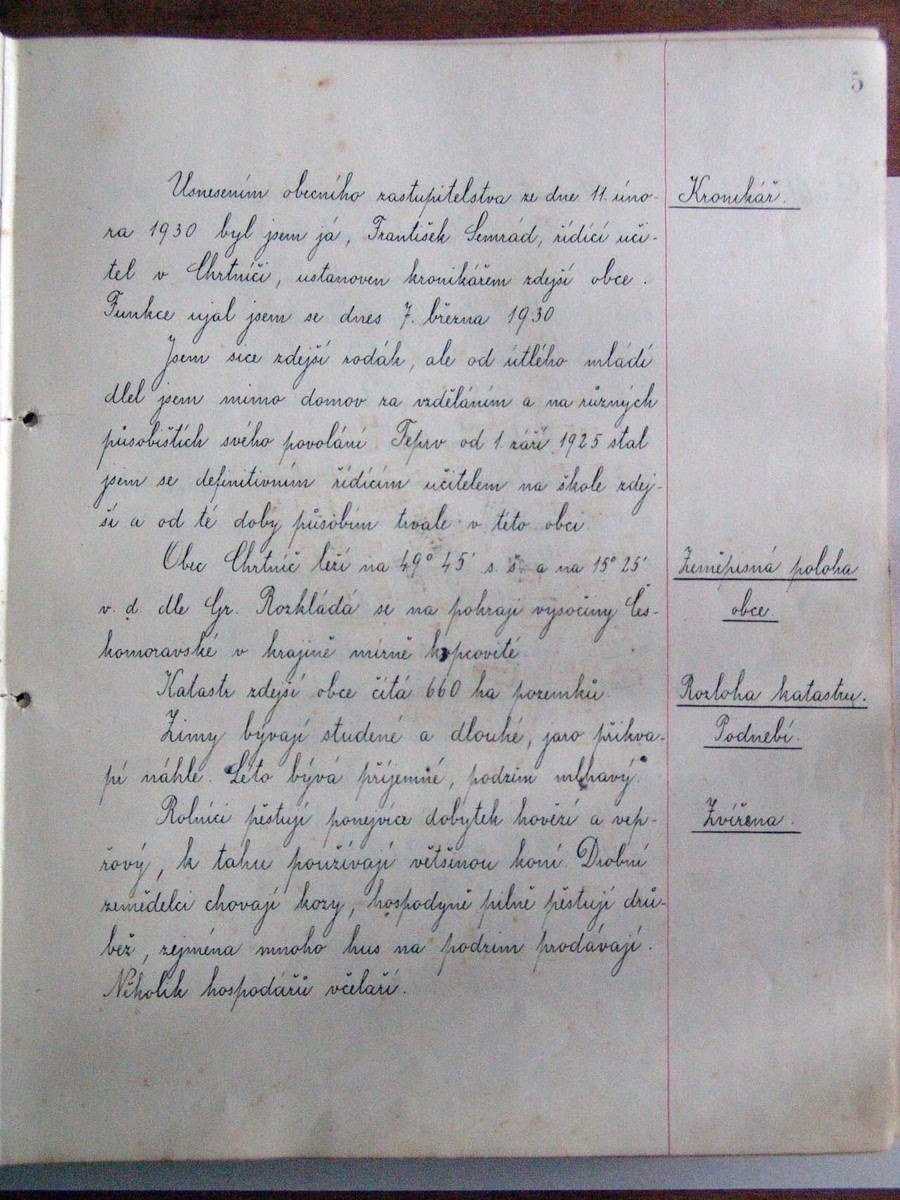 5
Usnesením obecního zastupitelstva ze dne 11. úno-
Kronikář.
ra 1930 byl jsem já, František Semrád, řídící uči-
tel v Chrtníči, ustanoven kronikářem zdejší obce.
Funkce ujal jsem se dnes 7. března 1930
Jsem sice zdejší rodák, ale od útlého mládí
dlel jsem mimo domov za vzděláním a na různých
působištích svého povolání Teprv od 1. září 1925 stal
jsem se definitivním řídícím učitelem na škole zdej-
ší a od té doby působím trvale v této obci
Obec Chrtníč leží na 49° 45' s. š. a na 15° 25'
Zeměpisná poloha
v. d. dle Gr. Rozkládá se na pokraji vysočiny Čes-
obce.
komoravské v krajině mírně kopcovité
Katastr zdejší obce čítá 660 ha pozemků.
Rozloha katastru.
Zimy bývají studené a dlouhé, jaro přikva-
Podnebí.
pí náhle. Léto bývá příjemné, podzim mlhavý.
Rolníci pěstují ponejvíce dobytek hovězí a vep-
Zvířena.
řový, k tahu používají většinou koní. Drobní
zemědelci chovají kozy, hospodyně pilně pěstují drů-
bež, zejména mnoho hus na podzim prodávají.
Několik hospodářů včelaří.